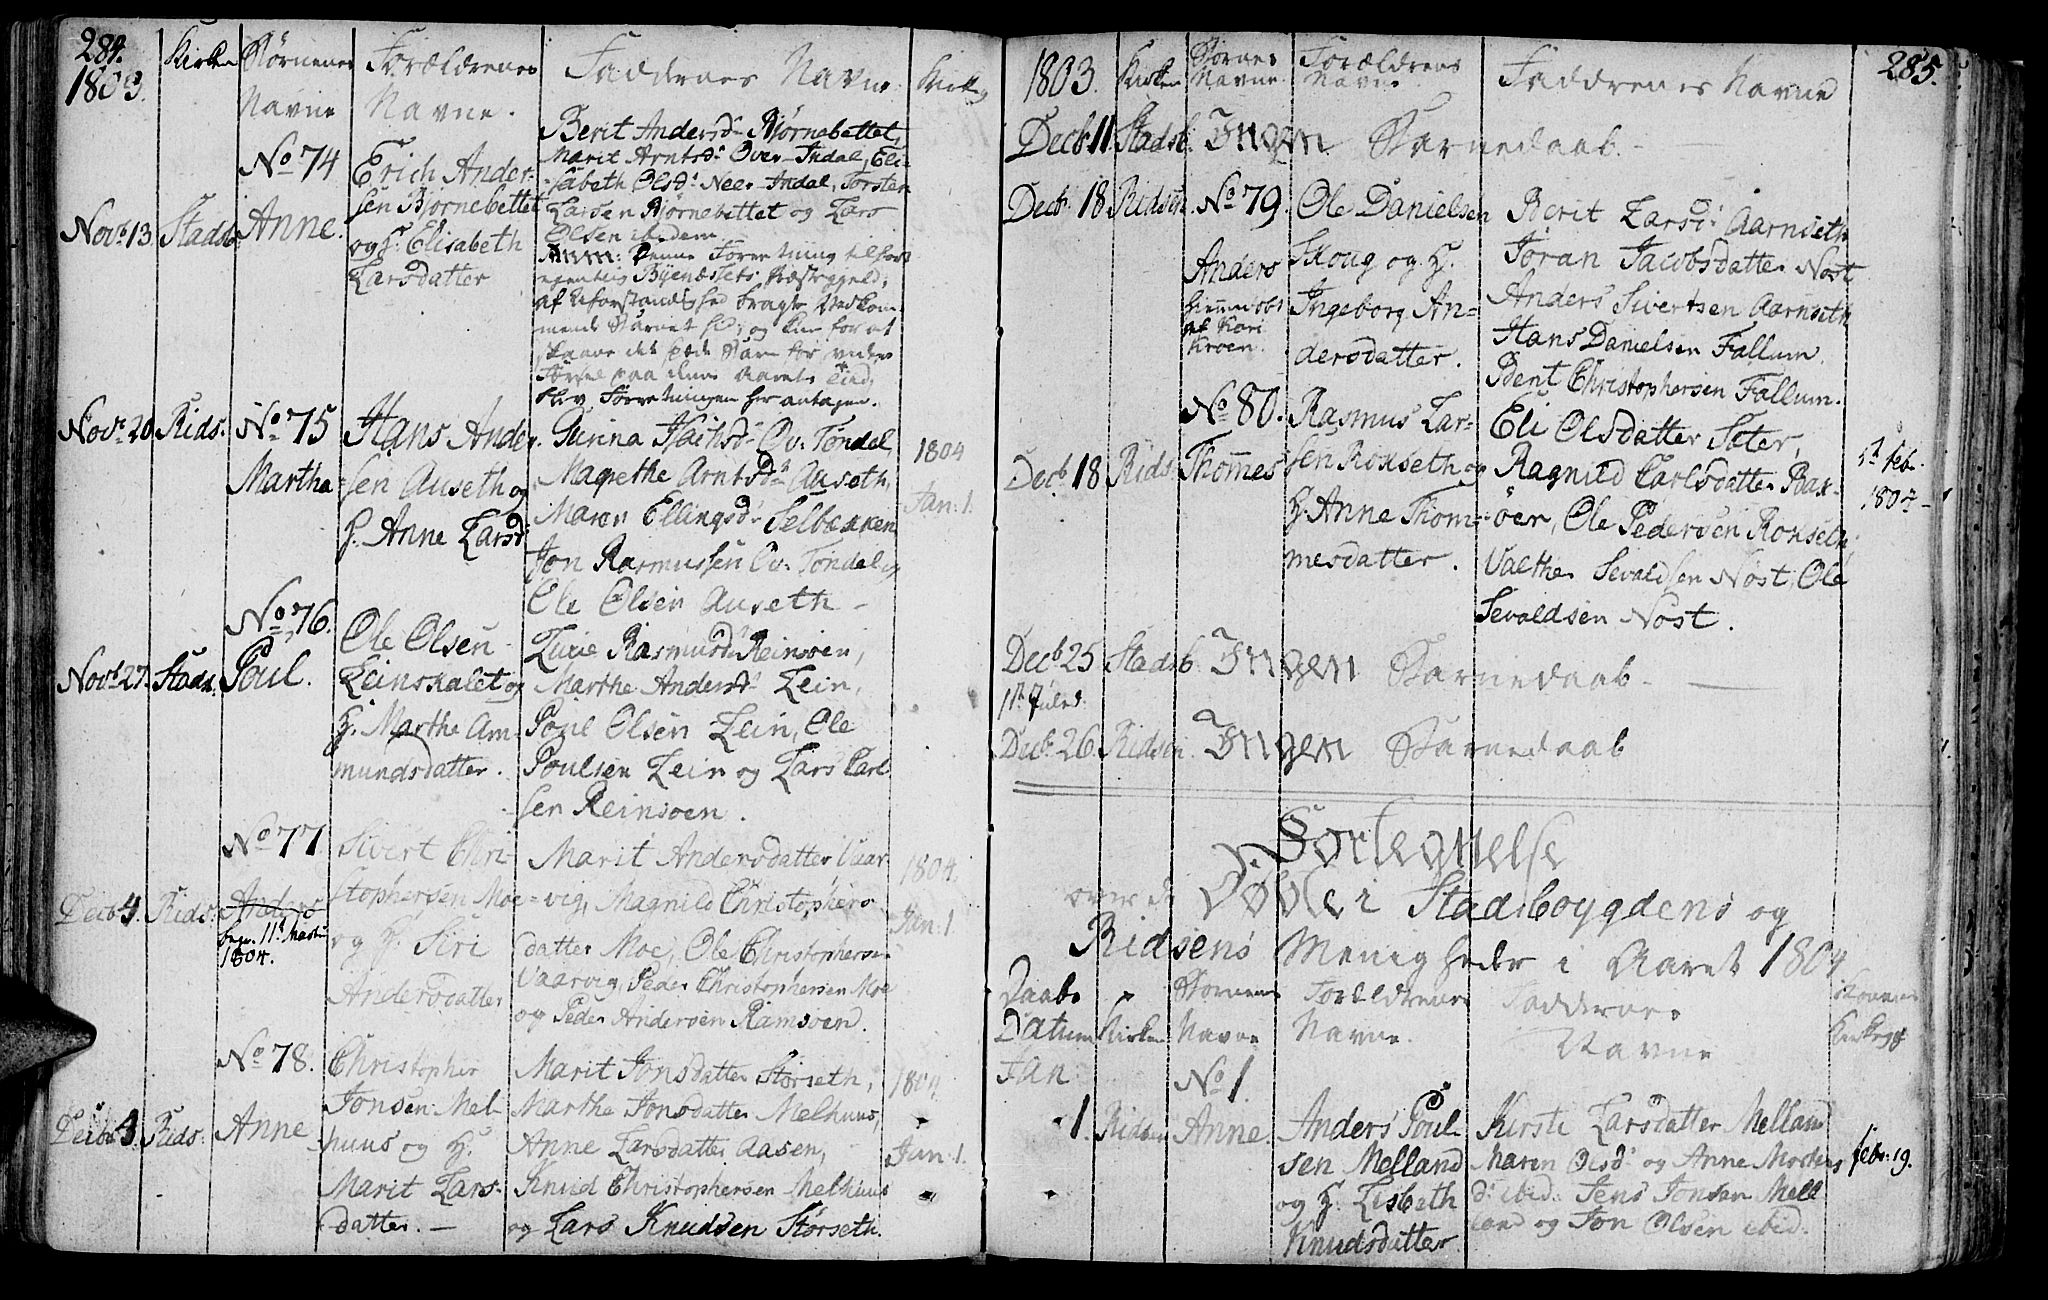 284.
1803. Kirken Børnenes Navne Forældrenes Navne. Faddrenes Navne
No 74
Nov: 13. Stadsb Anne.
Erich Ander-
sen Bjørnebettet
og H. Elisabeth
Larsdatter
Berit Andersd: Bjørnebettet,
Marit Arntsd: Over-Indal, Eli-
sabeth Olsd: Neer-Indal, Torsten
Larsen Bjørnebettet og Lars
Olsen ibidem
Anm: Denne Forretning tilhør
egentlig Byenæssets Præstegield;
af Uforstandighed bragte Vedkom-
mende Barnet hid, og kun for at
skaane det spæde Barn for videre
Førsel paa denne Aarets Tiid,
blev Forretningen her antagen.
No 75
Nov: 20. Rids. Martha
Hans Ander-
sen Auseth og
H. Anne Larsd:
Gurina Ov: Tøndel,
Magrethe Arntsdr Auseth,
Maren Ellingsd: Selbækken
Jon Rasmussen Ov: Tøndel og
Ole Olsen Auseth -
1804
Jan: 1.
No 76.
Nov: 27. Stads. Poul.
Ole Olsen
Leinskalet og
H. Marthe Am-
mundsdatter.
Lucie Rasmusd: Reinsoen,
Marthe Andersd: Lein,
Poul Olsen Lein, Ole
Poulsen Lein og Lars Carl-
sen Reinsoen.
No 77
Decb: 4. Rids: Anders
begr. 11t Martii
1804.
Sivert Chri-
stophersen Moe
og H. Siri
Andersdatter
Marit Andersdatter Vaar-
vig, Magnild Christophers-
datter Moe, Ole Christophersen
Vaarvig, Peder Christophersen Moe
og Peder Andersen Ramsoen.
1804.
Jan: 1.
No 78.
Decb: 4. Rids: Anne
Christopher
Jonsen Mel-
huus og H.
Marit Lars-
datter. -
Marit Jonsdatter Størseth,
Marthe Jonsdatter Melhuus,
Anne Larsdatter Aasen,
Knud Christophersen Melhuus
og Lars Knudsen Størseth.
1804
Jan: 1.
285.
1803. Kirken Børnes Navne Forældrens Navne Faddrenes Navne
Decb: 11. Stadsb. Ingen Barnedaab. -
Decb: 18. Ridsen No 79.
Anders
hiemmedøbt
af Kari
Kroen.
Ole Danielsen
Skoug og H.
Ingeborg An-
dersdatter.
Berit Larsd: Aarnseth
Joran Jacobsdatter Nøst
Anders Sivertsen Aarnseth
Hans Danielsen Fallum.
Bent Christophersen Fallum.
No 80.
Decb: 18 Rids: Thommes
Rasmus Lar-
sen Roxseth og
H. Anne Thom-
mesdatter.
Eli Olsdatter Seter,
Ragnild Carlsdatter Bax-
öer, Ole Pedersen Roxseth,
Valther Sevaldsen Nøst, Ole
Sevaldsen Nøst.
5t feb.
1804
Decb: 25 Stadsb Ingen Barnedaab.
1t Juled:
Decb: 26. Ridsen. Ingen Barnedaab
Fortegnelse
over de Døbte i Stadsboygdens og
Ridsens Menigheder i Aaret 1804
Daabs
Datum Kirken Børnenes Navne Forældrenes Navne. Faddrenes Navne
Jan No 1.
1. Ridsen Anne.
Anders Poul-
sen Melland
og H. Lisbeth
Knudsdatter
Kirsti Larsdatter Melland
Maren Olsd: og Anne Mortens
d: ibid: Jens Jonsen Mell-
land og Jon Olsen ibid.
febr: 19.